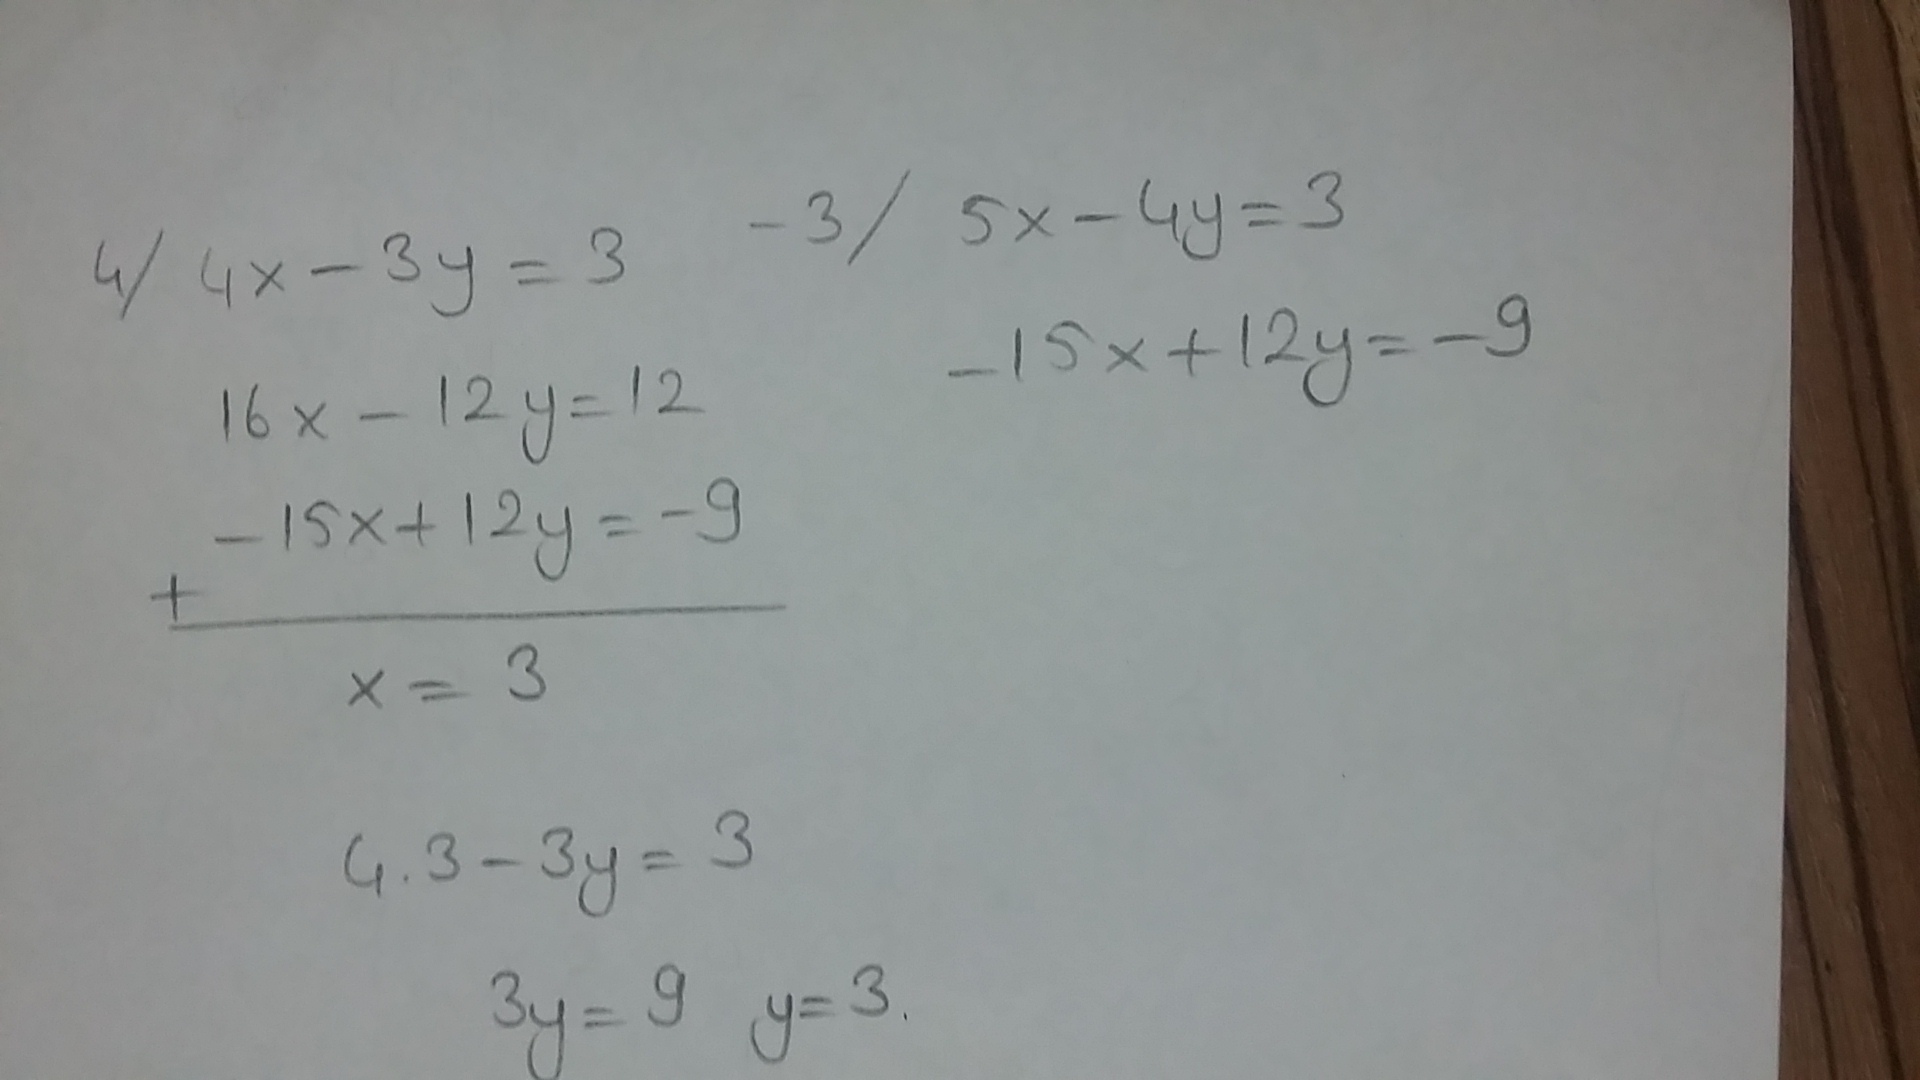 4/ 4x - 3y = 3
-3/ 5x - 4y = 3
16x - 12y = 12
-15x + 12y = -9
-15x + 12y = -9
+
x = 3
4.3 - 3y = 3
3y = 9 y = 3.